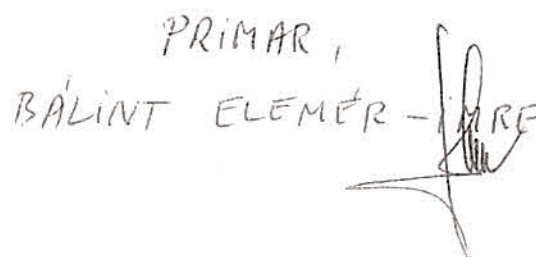 PRIMAR,
BÁLINT ELEMÉR-IMRE